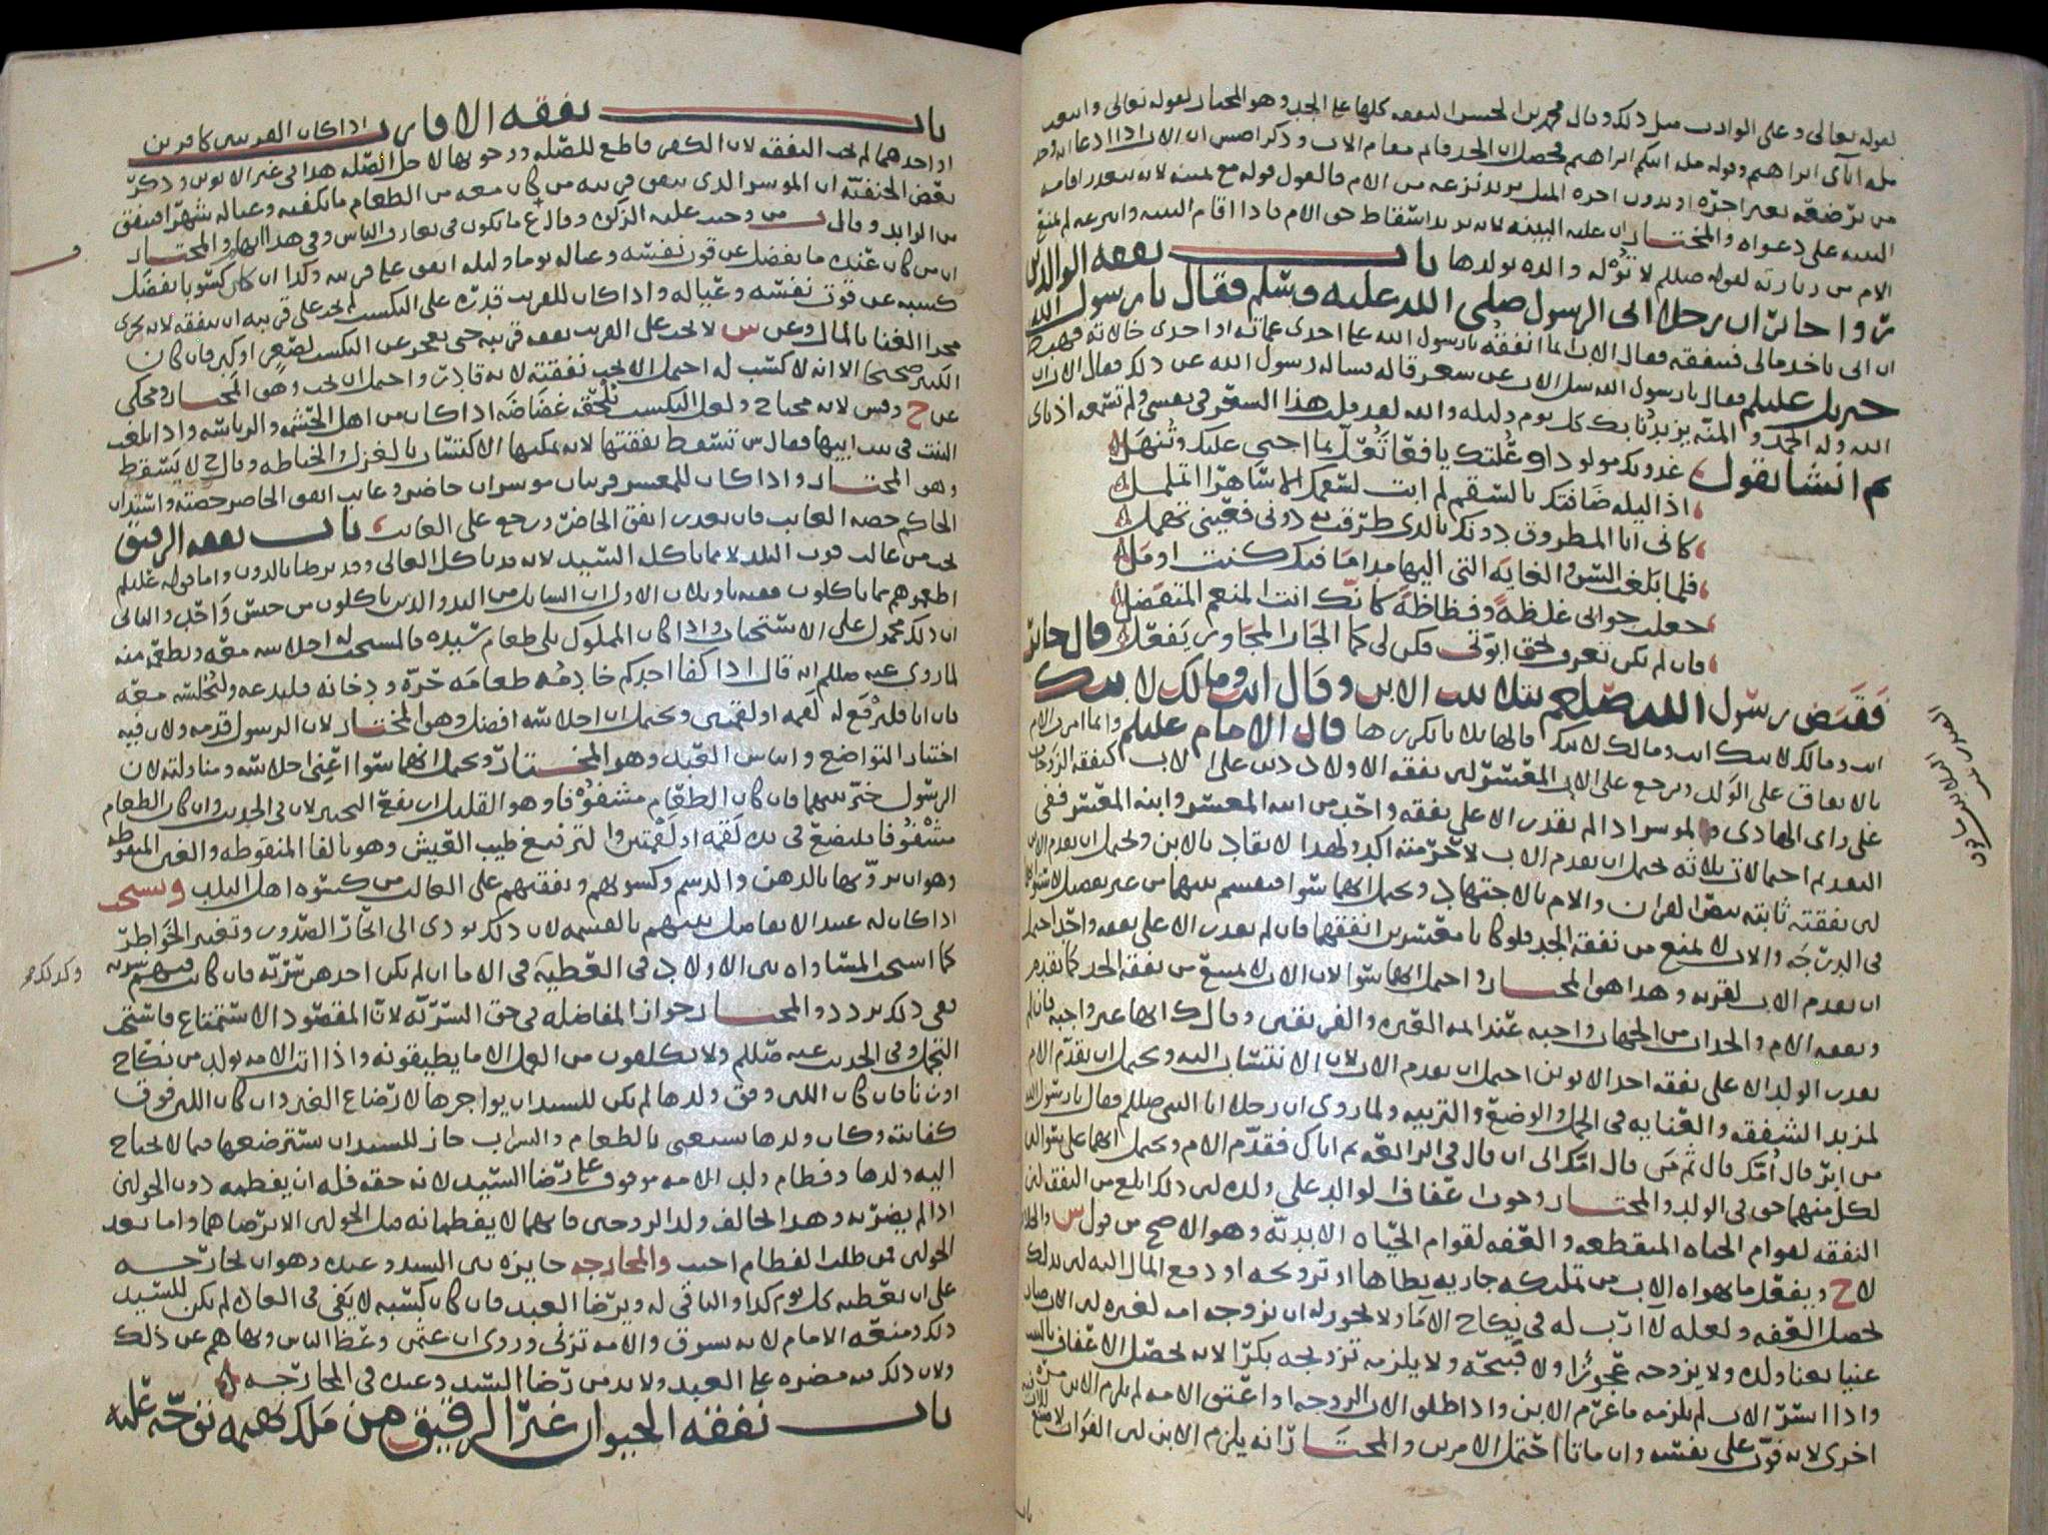 لقوله تعالى وعلى الوارث مثل ذلك وقال محمد بن الحسن النفقه كلها على الجد وهو المختار لقوله تعالى واتبعت
مله ابآى ابراهيم وقوله مله ابيكم ابراهيم
من ترضعه بغير اجره او بدون اجره المثل لم يرد نزعه من الام فالقول قوله مع يمينه لانه
البينه على دعواه والمختار ان عليه البينه لانه يريد اسقاط حق الام فاذا اقام البينه وانتزعه لم يمنع
الام من زيارته لقوله صللم لا توله والده بولدها باب نفقه الوالدين
روا جابر ان رجلا اتى الرسول صلى الله عليه وسلم فقال يا رسول الله
ان ابى ياخذ مالى فينفقه فقال الاب انما انفقه يا رسول الله على احدى عماته او احدى خالاته فهبط
جبريل عليلم فقال يا رسول الله سل الاب عن شعر قاله فساله رسول الله عن ذلك فقال الاب ان
الله وله الحمد والمنه يزيدنا بك كل يوم وليله والله لقد قلت هذا الشعر فى نفسى ولم تسمعه اذناى
ثم انشا يقول غذوتك مولودا وعلتك يافعا تعل بما اجبى عليك وتنهل
اذا ليله ضافتك بالسقم لم ابت لسقمك الا ساهرا اتململ
كانى انا المطروق دونك بالذى طرقت به دونى فعينى تهمل
فلما بلغت السن والغايه التى اليها مدا ما فيك كنت اومل
جعلت جزاىى غلظه وفظاظه كانك انت المنعم المتفضل
فان لم تكن تعرف لحق ابوتى فكن لى كما الجار المجاور يفعل قال جابر
فقبض رسول الله صلعم بتلابيب الابن وقال انت ومالك لابيك
انت ومالك لابيك انت ومالك لابيك قالها ثلاثا يكررها قال الامام عليلم وانما امر بى الام
بالانفاق على الولد ويرجع على الاب المعسر لان نفقه الاولاد دين على الاب كنفقه الزوجات
على راى الهادى والموسر اذا لم يقدر الا على نفقه واحد من ابيه المعسر وابنه المعسر ففى
التقديم احتمالات ثلاثه يحتمل ان يقدم الاب لان حرمته اكد ولهذا لا يقاد بالابن ويحتمل ان يقدم الابن
لان نفقته ثابته بنص القران والام بالاجتهاد ويحتمل انهما سوا فيقسم بينهما من غير تفضيل لاستوائهما
فى الدرجه والاب لا يمنع من نفقه الجد فلو كانا معسرين انفقهما فان لم يقدر الا على نفقه واحد احتمل
ان يقدم الاب لقربه وهذا هو المختار واحتمل انهما سوا لان الاب لا يمنع من نفقه الجد كما تقدم
ونفقه الام والجدات من الجهات واجبه عند ائمه العتره والفريقين وقال ك انها غير واجبه فان لم
يقدر الولد الا على نفقه احد الابوين احتمل ان يقدم الاب لان الانتساب اليه ويحتمل ان تقدم الام
لمزيد الشفقه والعنايه فى الحمل والوضع والتربيه ولما روى ان رجلا اتا النبى صللم فقال يا رسول الله
من ابر قال امك قال ثم من قال امك الى ان قال فى الرابعه ثم اباك فقدم الام ويحتمل انهما على سوا لان
لكل منهما حق فى الولد والمختار وجوب عفاف الوالد على ولده لان ذلك ابلغ من النفقه لان
النفقه لقوام الحياه المنقطعه والعفه لقوام الحياه الابديه وهو الاصح من قول س
لاح ويفعل ما يهواه الاب من تمليكه جاريه يطاها او تزويجه او دفع المال اليه لان بذلك
تحصل العفه ولعله لا ارب له فى نكاح الاما ولا يجوز له ان يزوجه امه لغيره لان الاب صار
غنيا بغنا ولده ولا يزوجه عجوزا ولا قبيحه ولا يلزمه تزويجه بكرا لانه يحصل الاعفاف بالثيب
واذا ايسر الاب لم يلزمه ما غرم الابن واذا طلق الاب الزوجه او اعتق الامه لم يلزم الابن مره
اخرى لانه فوت على نفسه وان ماتا احتمل الامرين والمختار انه يلزم الابن لان الفوات
باب نفقه الاقارب اذا كان القريبين كافرين
او احدهما لم تجب النفقه لان الكفر قاطع للصله ووجوبها لاجل الصله هذا فى غير الابوين وذكر
بعض الحنفيه ان الموسر الذى ينفق قريبه من كان معه من الطعام ما يكفيه وعياله شهرا فينفق
من الزايد وقال من وجبت عليه الزكوه وقال ع ما يكون فى تعارف الناس وفى هذا ابهام والمختار
ان من كان عنده ما يفضل عن قوت نفسه وعياله يوما وليله انفق على قريبه وكذا ان كان كسوبا يفضل
كسبه عن قوت نفسه وعياله واذا كان للقريب قدره على التكسب لم تجب على قريبه ان ينفقه لانه يجرى
مجرا الغنا بالمال وعن س لا تجب على القريب نفقه قريبه حتى يعجز عن التكسب لصغر او كبر فان كان
الكبير صحيحا الا انه لا كسب له احتمل الا تجب نفقته لانه قادر واحتمل ان تجب وهو المختار ومحكى
عن ح وقين لانه محتاج ولعل التكسب تلحقه غضاضه اذا كان من اهل الحشمه والرياسه واذا بلغت
البنت فى بيت ابيها فقال س تسقط نفقتها لانه يمكنها الاكتساب بالغزل والخياطه وقال ح لا يسقط
وهو المختار واذا كان للمعسر قريبان موسران حاضر وغايب انفق الحاضر حصته واستدان
الحاكم حصه الغايب فان تعذر انفق الحاضر ورجع على الغايب باب نفقه الرقيق
تجب من غالب قوت البلد لا مما ياكله السيد لانه قد ياكل الغالى وقد يرضا بالدون واما قوله عليلم
اطعموهم مما تاكلون ففيه تاويلان الاول ان السايل من البدو الذين ياكلون من جنس واحد والثانى
ان ذلك محمول على الاستحباب واذا كان المملوك يلى طعام سيده فالمستحب له اجلاسه معه ويطعمه منه
لما روى عنه صللم انه قال اذا كفا احدكم خادمه طعامه حره ودخانه فليدعه وليجلسه معه
فان ابا فليرفع له لقمه او لقمتين ويحتمل ان اجلاسه افضل وهو المختار لان الرسول قدمه ولان فيه
اختيار التواضع وايناس العبد وهو المختار ويحتمل انهما سوا اعنى اجلاسه ومناولته لان
الرسول خير بينهما فان كان الطعام مشفوها وهو القليل ان يقع التخيير لان فى الحديث وان كان الطعام
مشفوها فليضع فى يده لقمه او لقمتين
وهو ان يرويها بالدهن والدسم وكسوتهم ونفقتهم على الغالب من كسوه اهل البلد ويستحب
اذا كان له عبيد الا يفاضل بينهم بالقسمه لان ذلك يودى الى ايحار الصدور وتغير الخواطر
كما استحب المساواه بين الاولاد فى العطيه فى الاما ان لم يكن احدهن سريه فان كانت فيهم سريه
ففى ذلك تردد والمختار جواز المفاضله فى حق السريه لان المقصود الاستمتاع فاستحق
التجمل وفى الحديث عنه صللم ولا تكلفون من العمل الا ما يطيقونه واذا اتت الامه بولد من نكاح
او زنا فان كان اللبن وفق ولدها لم يكن للسيد ان يواجرها لارضاع الغير وان كان اللبن فوق
كفايته وكان ولدها يستغنى بالطعام والشراب جاز للسيد ان يسترضعها فيما لا يحتاج
اليه ولدها وفطام ولد الامه موقوف على رضا السيد لانه حقه فله ان يفطمه دون الحولين
اذا لم يضر به وهذا بخلاف ولد الزوجين فانهما لا يفطمانه قبل الحولين الا برضاهما واما بعد
الحولين فمن طلب الفطام اجيب والمخارجه جايزه بين السيد وعبده وهو ان يخارجه
على ان يعطيه كل يوم كذا والباقى له وبرضا العبد فان كان كسبه لا يفى فى العاده لم يكن للسيد
ذلك ومنعه الامام لانه يسرق والامه تزنى وروى ان عثمن وعظ الناس ونهاهم عن ذلك
ولان ذلك فيه مضره على العبد ولا بد من رضا السيد وعبده فى المخارجه
باب نفقه الحيوان غير الرقيق من ملك بهيمه توجه عليه
وكذلك